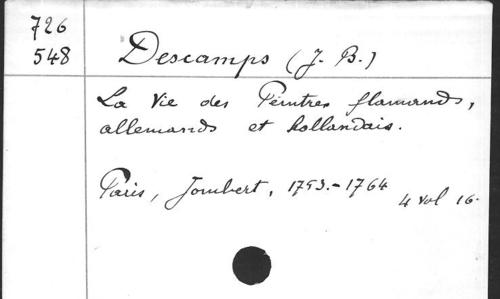 726
548
Descamps (J. B.)
La Vie des Peintres flamands,
allemands et hollandais.
Paris, Jombert, 1753.-1764
4 vol 16.